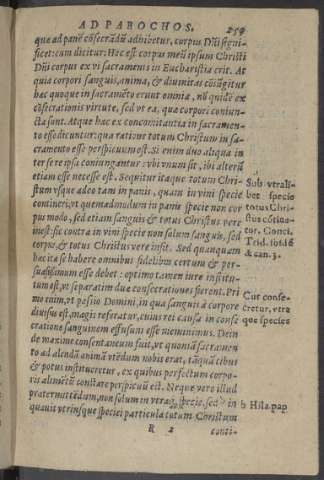 AD PAROCHOS. 259
que ad panẽ cõsecrãdũ adhibetur, corpus Dñi signi-
ficet: cum dicitur: Hoc est corpus meũ ipsum Christi
Dñi corpus ex vi sacramenti in Eucharistia erit. At
quia corpori sanguis, anima, & diuinitas cõiũgitur
hæc quoque in sacramẽto erunt omnia, nõ quidẽ ex
cõsecrationis virtute, sed vt ea, quæ corpori coniun-
cta sunt. Atque hæc ex concomitantia in sacramen-
to esse dicuntur: qua ratione totum Christum in sa-
cramento esse perspicuum est. Si enim duo aliqua in
ter se reipsa coniungantur: vbi vnum sit, ibi alterũ
etiam esse necesse est. Sequitur itaque totum Chri-
stum vsque adeo tam in panis, quam in vini specie
contineri, vt quemadmodum in panis specie non cor
pus modo, sed etiam sanguis & totus Christus vere
inest: sic contra in vini specie non solum sanguis, sed
corpus, & totus Christus vere insit. Sed quanquam
hæc ita se habere omnibus fidelibus certum & per-
suasissimum esse debet: optimo tamen iure institu-
tum est, vt separatim duæ consecrationes fierent. Pri
mo enim, vt passio Domini, in qua sanguis à corpore
diuisus est, magis referatur, cuius rei causa in conse
cratione sanguinem effusum esse meminimus. Dein
de maxime consentaneum fuit, vt quoniã sacramen
to ad alendã animã vtẽdum nobis erat, tãquã cibus
& potus institueretur, ex quibus perfectum corpo-
ris alimẽtũ constare perspicuũ est. Neque vero illud
prætermittẽdum, non solum in vtraque specie, sed in
quauis vtriusque speciei particula totum Christum
R 2 conti-
Sub vtrali-
bet specie
totus Chri-
stus cõtine-
tur. Conci.
Trid. ibidẽ
& can. 3.
Cur conse-
cretur, vtra
que species
b Hila. pap